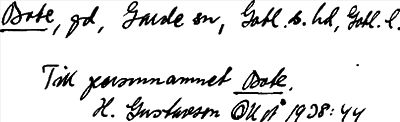 Bote, gd, Garde sn, Gotl. s. hd, Gotl. l.
Till personnamnet Bote.
H. Gustavson OUpå 1938:44